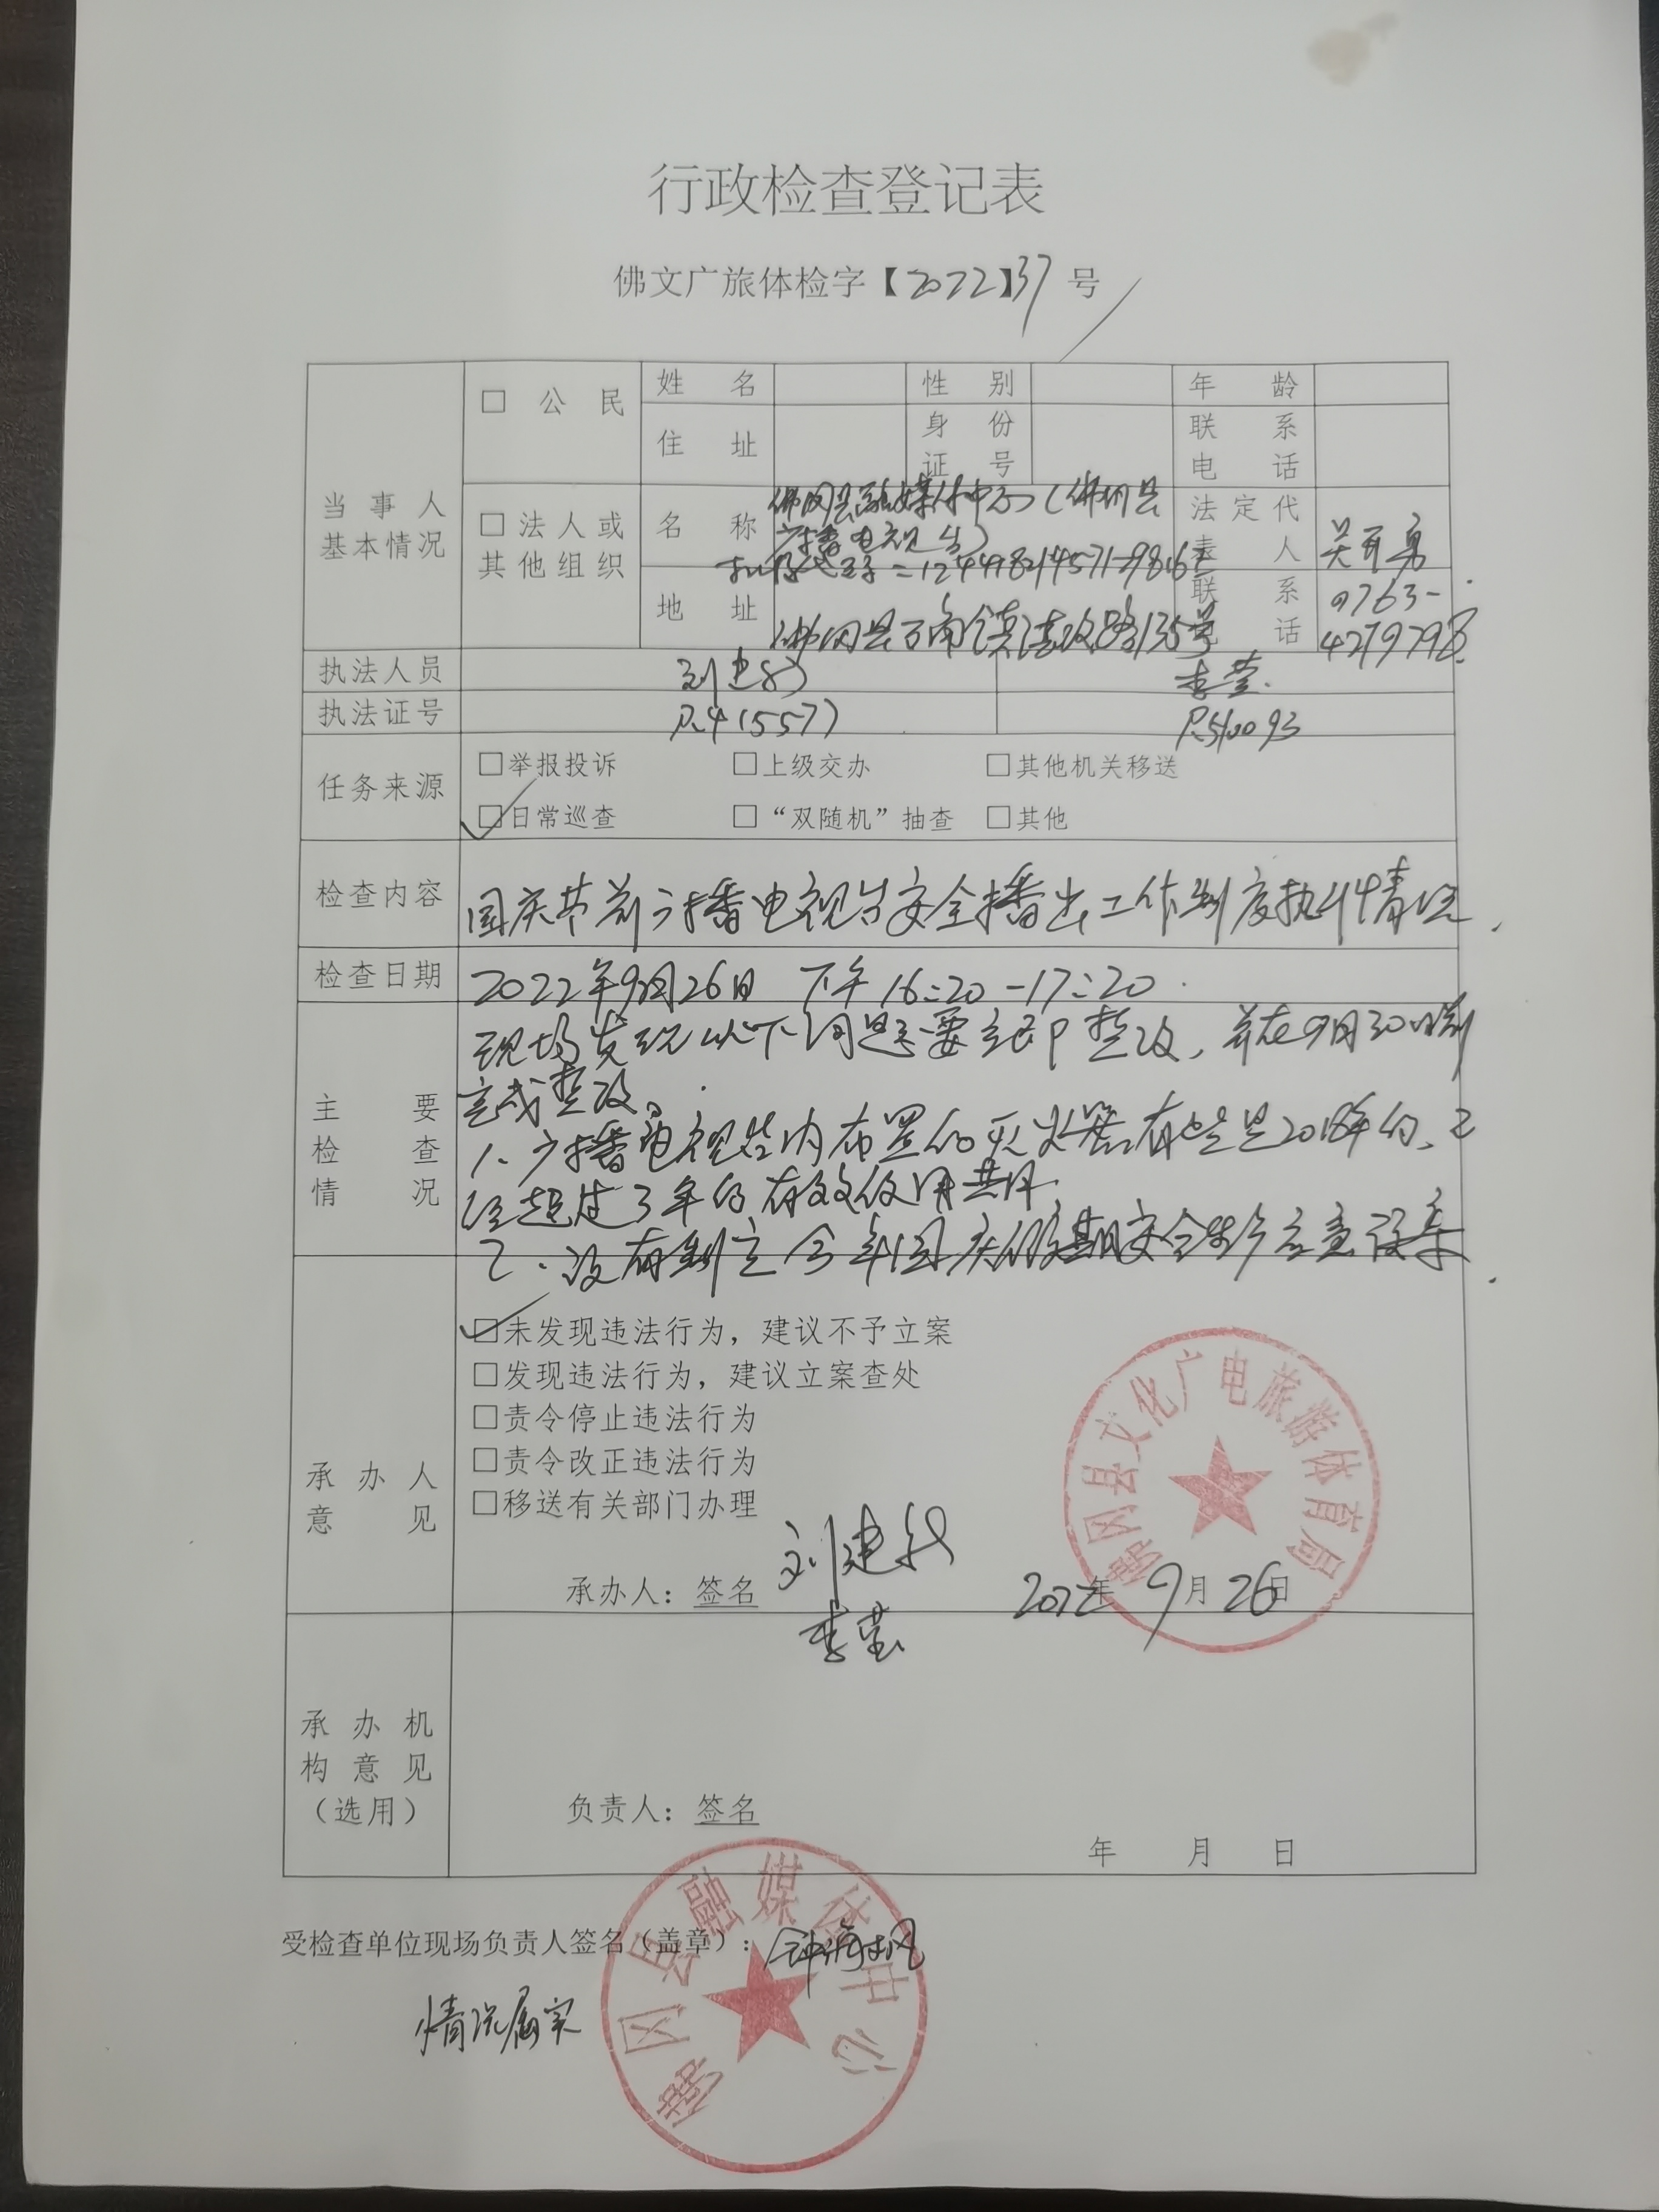 行政检查登记表
佛文广旅体检字【2022】37号
当事人基本情况
□ 公民
姓名
性别
年龄
住址
身份证号
联系电话
□ 法人或其他组织
名称
佛冈县融媒体中心（佛冈县
广播电视台）
法定代表人
地址
佛冈县石角镇法政路135号
联系电话
0763-
4279798
执法人员
李莹
执法证号
任务来源
□举报投诉 □上级交办 □其他机关移送
□日常巡查 □“双随机”抽查 □其他
检查内容
国庆节前广播电视台安全播出工作制度执行情况.
检查日期
2022年9月26日 下午16:20-17:20
主要检查情况
现场发现以下问题要立即整改，并在9月30日前
完成整改。
1、广播电视台内布置的灭火器有些是2018年的、已
经超过3年的有效使用期.
2.没有制定今年国庆假期安全生产应急预案.
承办人意见
□未发现违法行为，建议不予立案
□发现违法行为，建议立案查处
□责令停止违法行为
□责令改正违法行为
□移送有关部门办理
承办人：签名
李莹
2022年9月26日
佛冈县文化广电旅游体育局
承办机构意见（选用）
负责人：签名
年 月 日
受检查单位现场负责人签名（盖章）：
情况属实
佛冈县融媒体中心